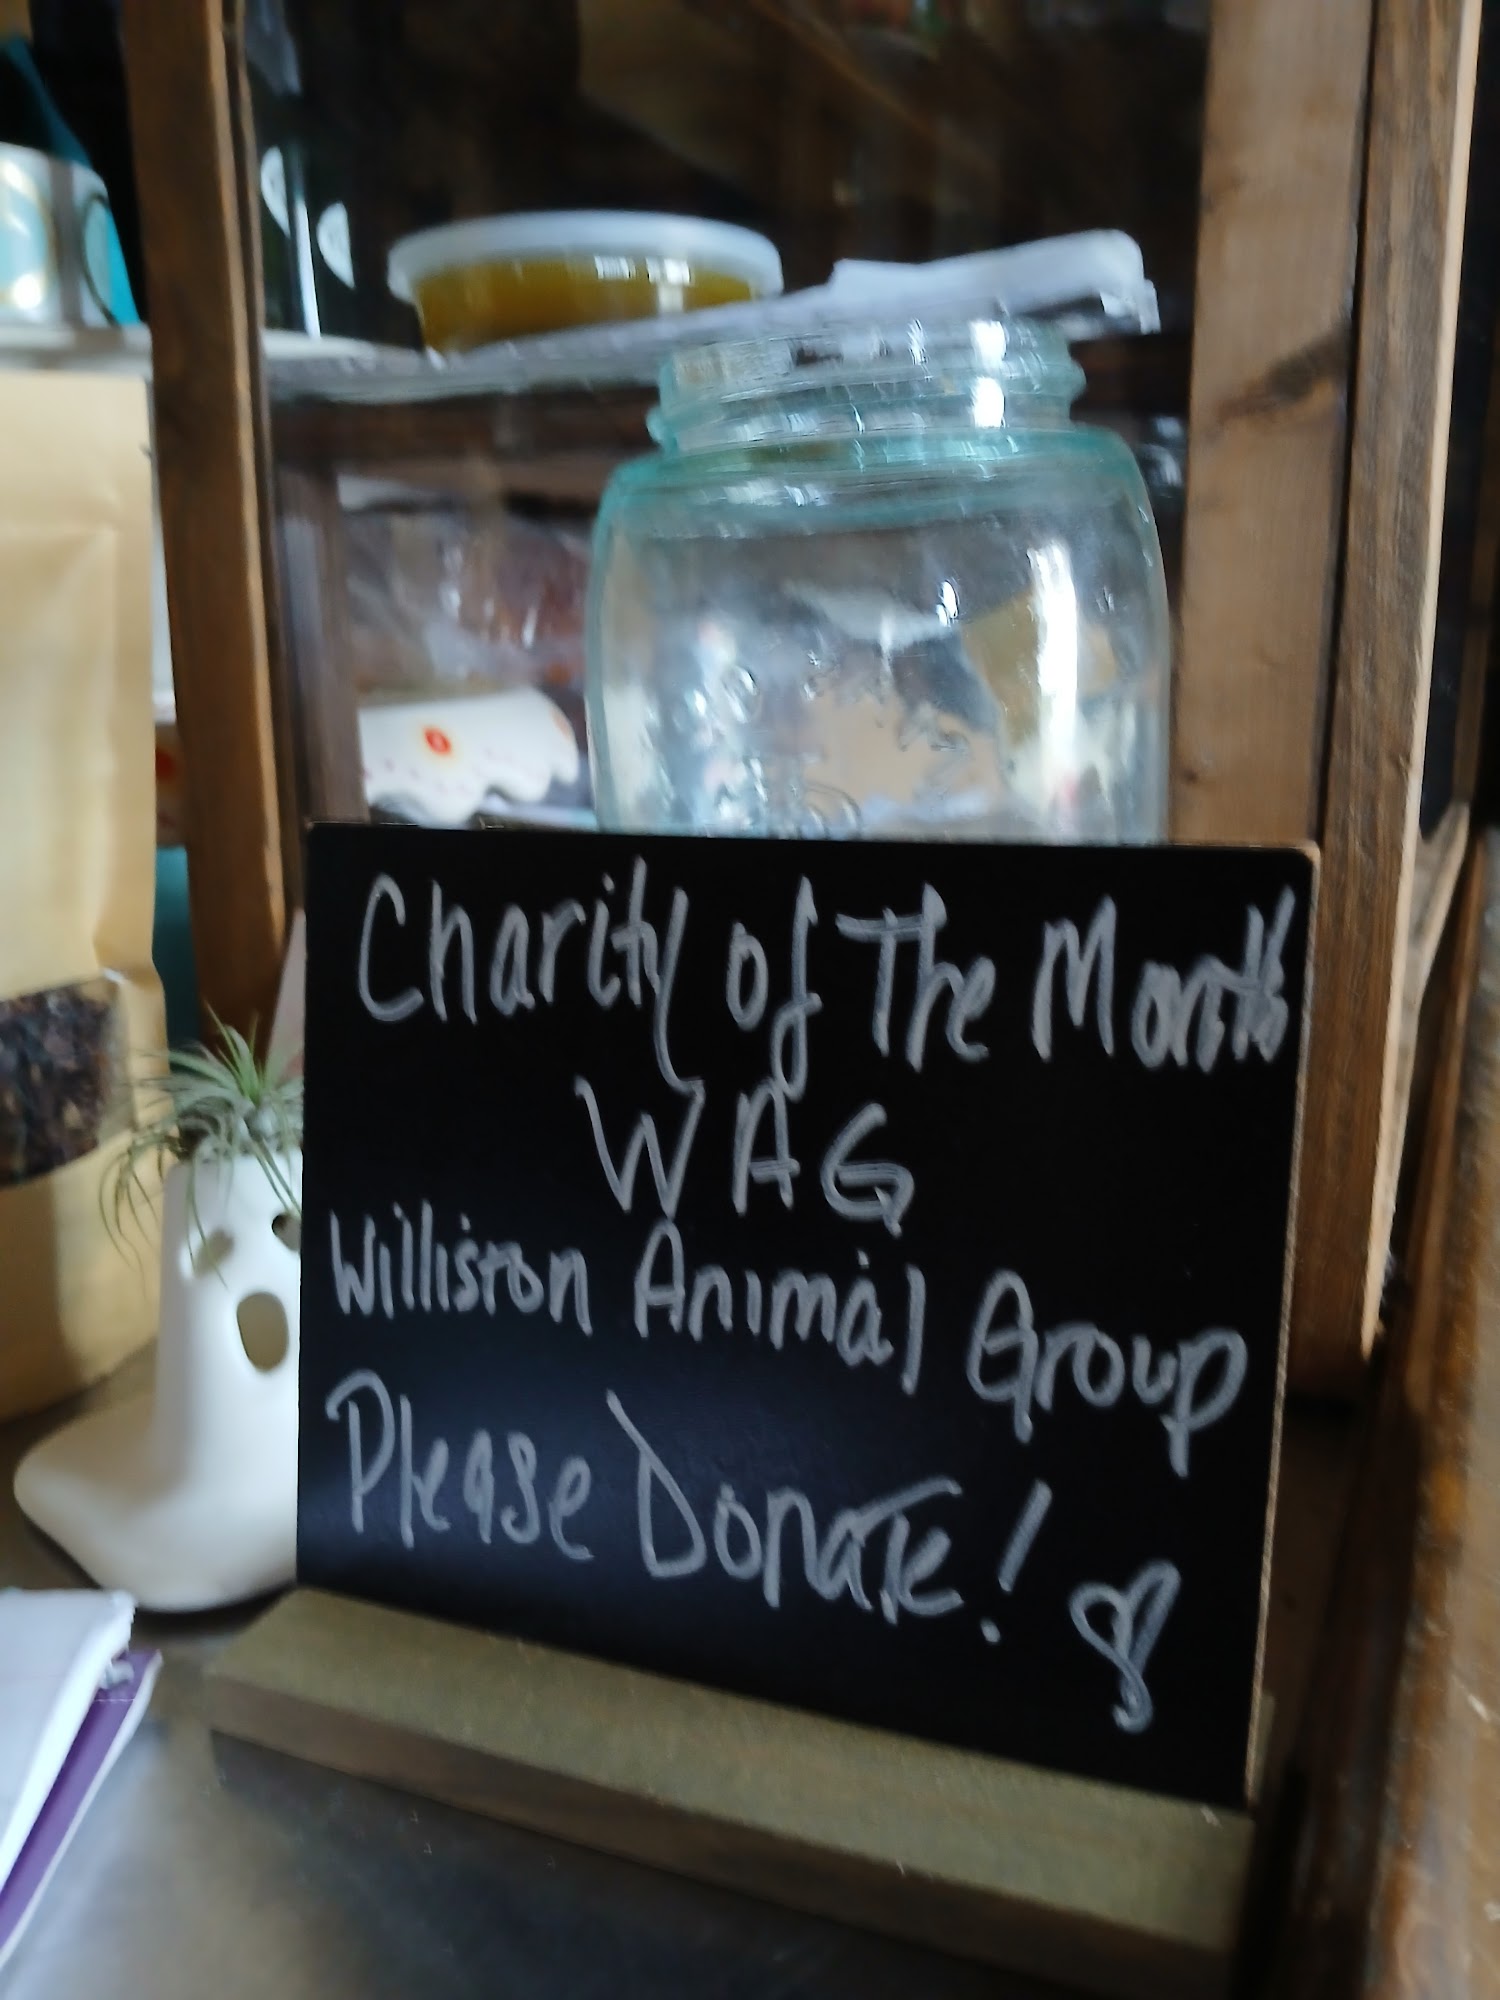 Charity of The Month
WAG
Williston Animal Group
Please Donate!